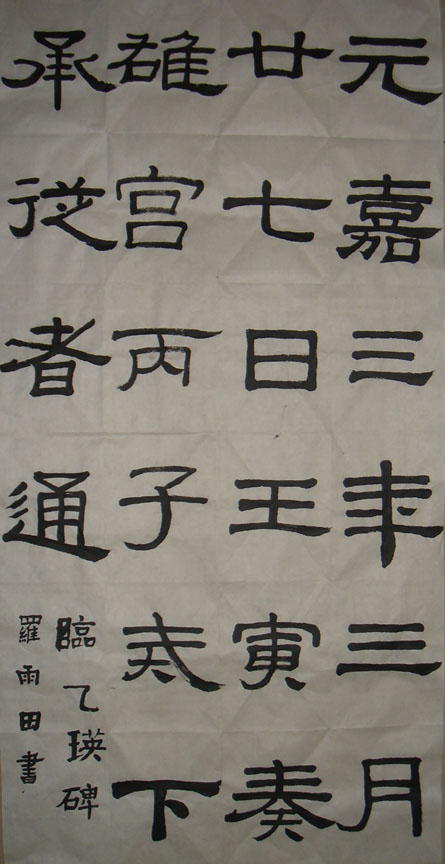 元嘉三年三月
廿七日壬寅奏
雒宫丙子戒下
承從者通
臨乙瑛碑
羅雨田書